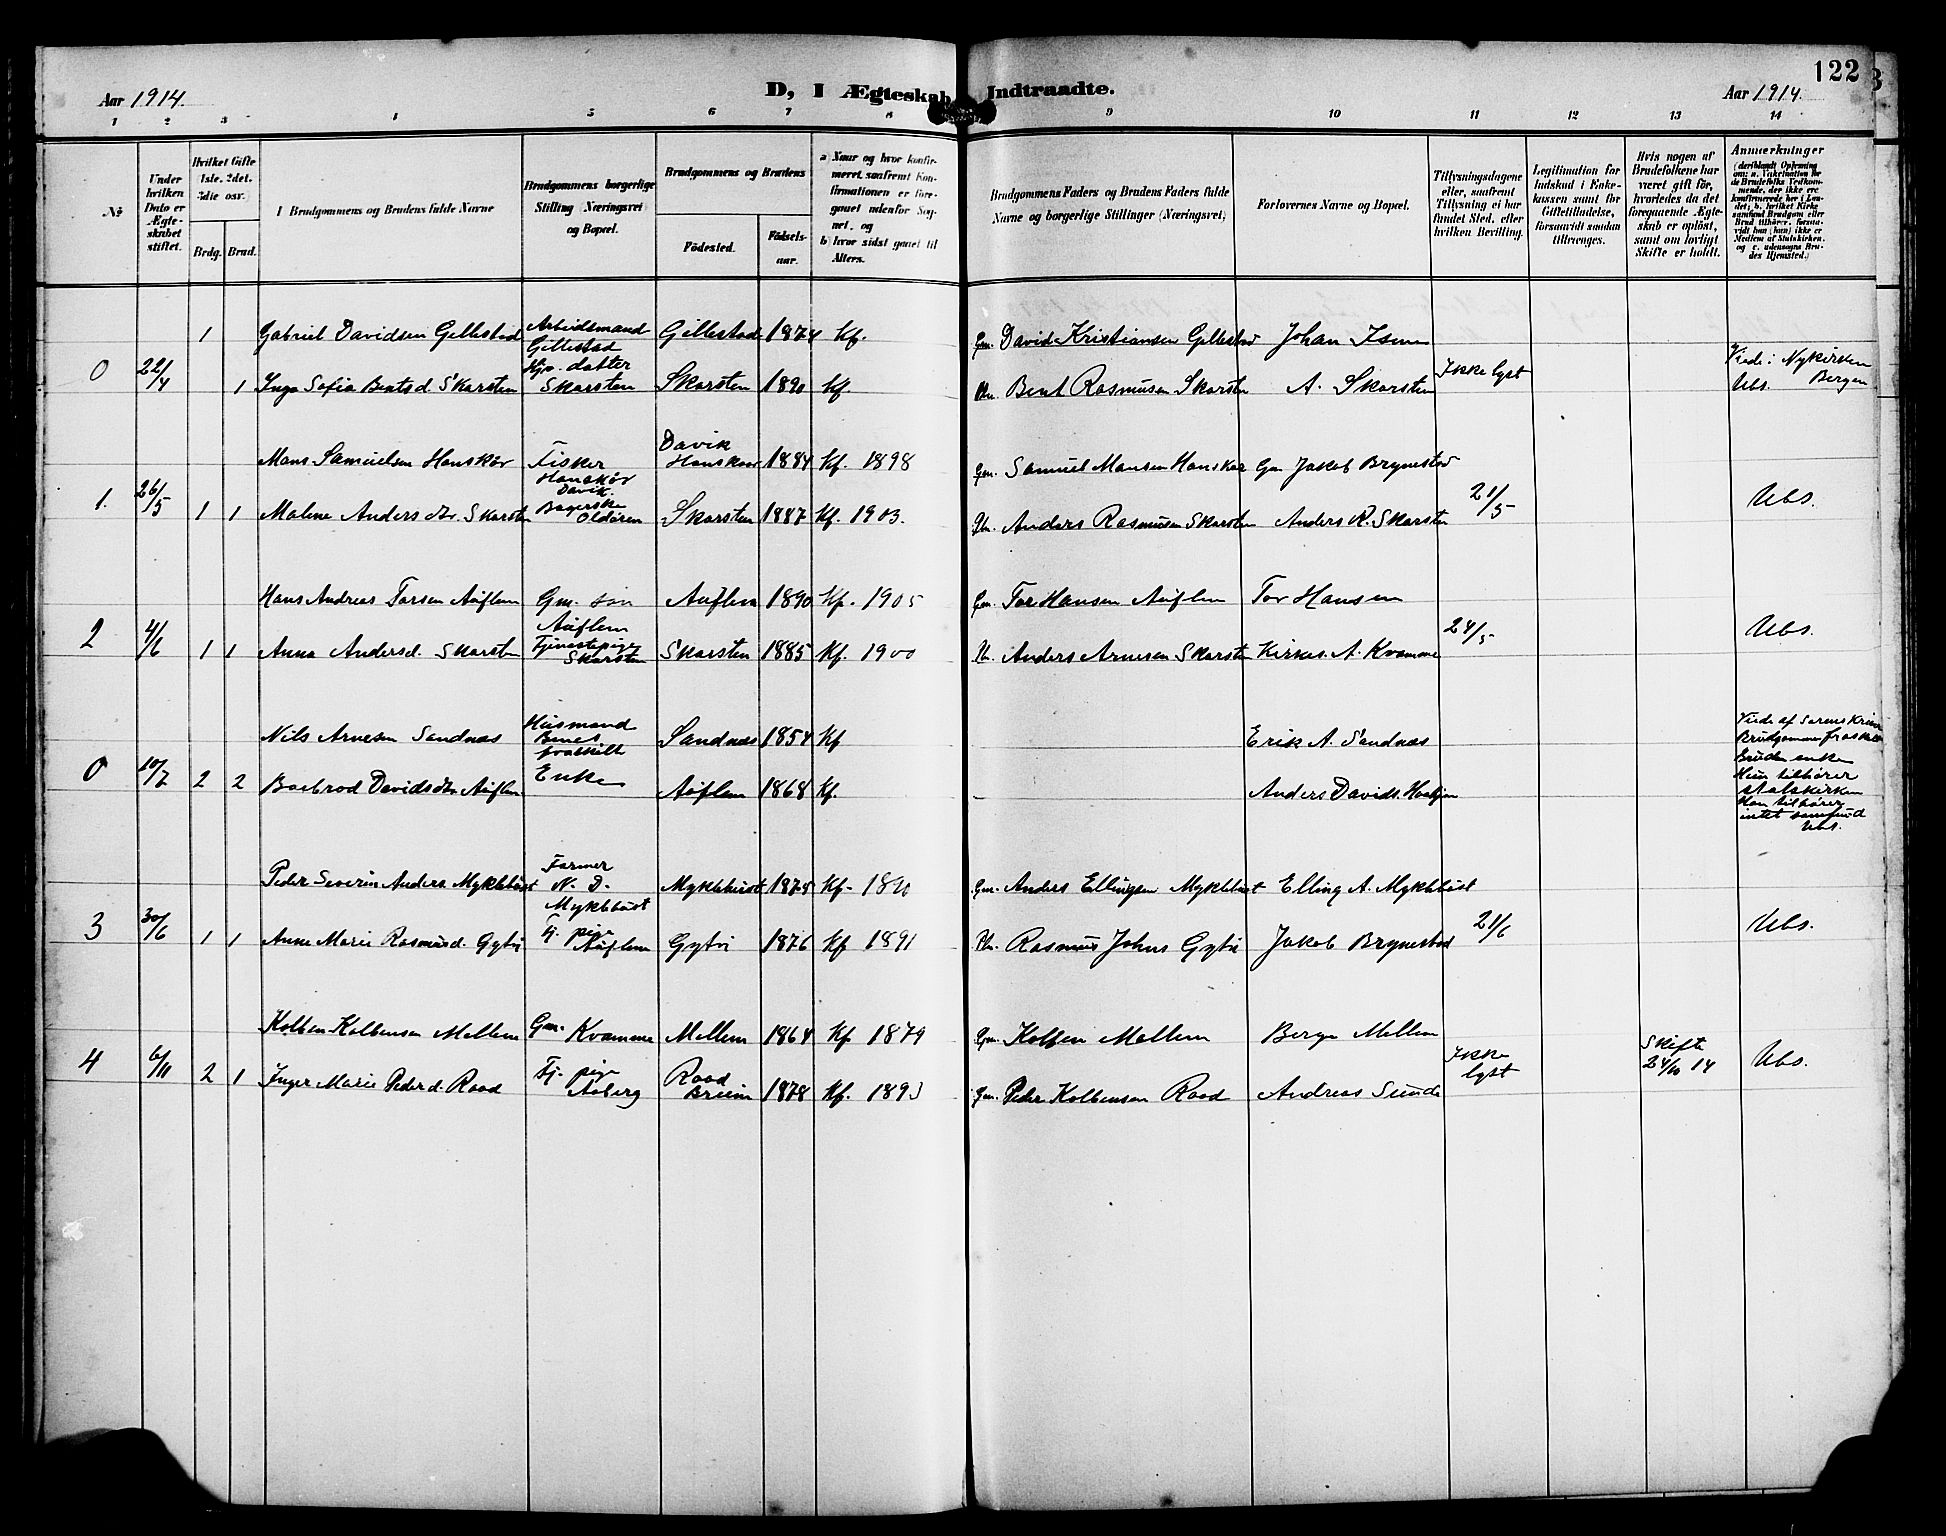 122
Aar 1914.
D, I Ægteskab Indtraadte.
Aar 1914.
1 2 3 4 5 6 7 8 9 10 11 12 13 14
№
Under hvilken Dato er Ægteskabet stiftet.
Hvilket Gifte (1ste. 2det. 3die osv.)
Brdg. Brud.
I Brudgommens og Brudens fulde Navne
Brudgommens borgerlige Stilling (Næringsvei) og Bopæl.
Brudgommens og Brudens
Födested.
Födselsaar.
a) Naar og hvor konfirmeret, saafremt Konfirmationen er foregaaet udenfor Sognet, og
b) hvor sidst gaaet til Alters.
Brudgommens Faders og Brudens Faders fulde Navne og borgerlige Stillinger (Næringsvei)
Forlovernes Navne og Bopæl.
Tillysningsdagene eller, saafremt Tillysning ei har fundet Sted, efter hvilken Bevilling.
Legitimation for Indskud i Enkekassen samt for Giftetilladelse, forsaavidt saadan tiltrænges.
Hvis nogen af Brudefolkene har været gift för, hvorledes da det foregaaende Ægteskab er oplöst, samt om lovligt Skifte er holdt.
Anmærkninger
1 Gabriel Davidsen Gillestad Arbeidsmand Gillestad Gillestad 1874 Kf. Gm. David Kristiansen Gillestad Johan
0 22/4 1 Inga Sofia Bentsd. Skarsten datter Skarsten Skarsten 1890 Kf. Bent Rasmusen Skarsten A. Skarsten Ikke lyst Viede i Nykirken Bergen Ubs.
Mons Samuelsen Honskør Fisker Honskør Davik. Davik Honskaar 1884 Kf. 1898 Gm. Samuel Monsen Honskør Gm Jakob Brynestad
1. 26/5 1 1 Malene Andersdtr. Skarsten Bagerske Oldören Skarsten 1887 Kf. 1903. Anders Rasmusen Skarsten Anders R. Skarsten 21/5 Ubs.
Hans Andreas Torsen Auflem Gm. sön Auflem Auflem 1890 Kf. 1905 Gm. Tor Hansen Auflem Tor Hansen
2 4/6 1 1 Anna Andersd. Skarsten Tjenestepige Skarsten Skarsten 1885 Kf. 1900 Anders Arnesen Skarsten Kirkes. A. Kvamme 24/5 Ubs.
Nils Arnesen Sandnæs Husmand fraskilt Sandnæs 1854 Kf Erik A. Sandnæs
0 10/7 2 2 Borbrod Davidsdtr Auflem Enke Auflem 1868 Kf. – Anders Davids.
Viede af Sorenskriver
Brudgommen fraskilt
Bruden enke
Hun tilhører
statskirken
Han tilhører
intet samfund
Ubs.
Peder Severin Anders. Myklebust Farmer N. D. Myklebust Myklebust 1875 Kf. 1890 Gm. Anders Ellingsen Myklebust Elling A. Myklebust
3 30/6 1 1 Anne Marie Rasmusd. Gytri Tj. pige Auflem Gytri 1876 Kf 1891 Rasmus Johns Gytri Jakob Brynestad 21/6 Ubs.
Kolben Kolbensen Mellem Gm. Kvamme Mellem 1864 Kf 1879 Gm. Kolben Mellem Berge Mellem
4 6/11 2 1 Inger Marie Pederd. Raad Tj. pige Aaberg Raad Breim 1878 Kf. 1893 Gm. Peder Kolbensen Raad Andreas Sunde Ikke lyst Skifte 24/10 14 Ubs.